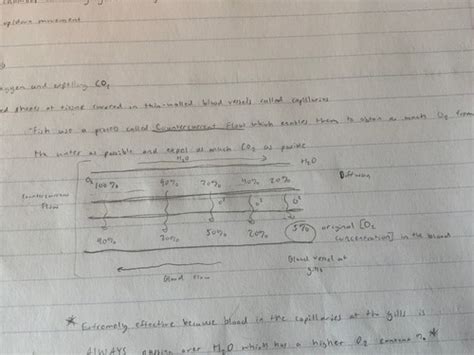 up/down movement
oxygen and expelling CO₂
of tissue covered in thin-walled blood vessels called capillaries
-Fish use a process called Countercurrent Flow which enables them to obtain as much O₂ from
the water as possible and expel as much CO₂ as possible
H₂O H₂O
O₂ 100% 90% 70% 40% 20% Diffusion
Countercurrent
Flow
90% 70% 50% 20% 5% original [O₂
concentration] in the blood
Blood vessel at
gills
Blood Flow
* Extremely effective because blood in the capillaries at the gills is
ALWAYS passing over H₂O which has a higher O₂ *